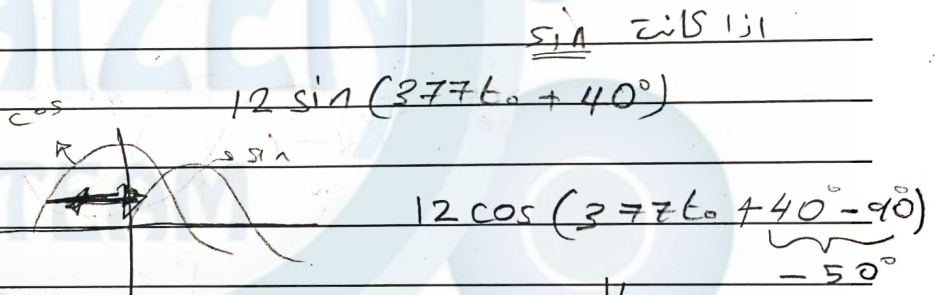 اذا كانت sin
12 sin (377t₀ + 40°)
cos
sin
12 cos (377t₀ + 40° - 90°)
- 50°